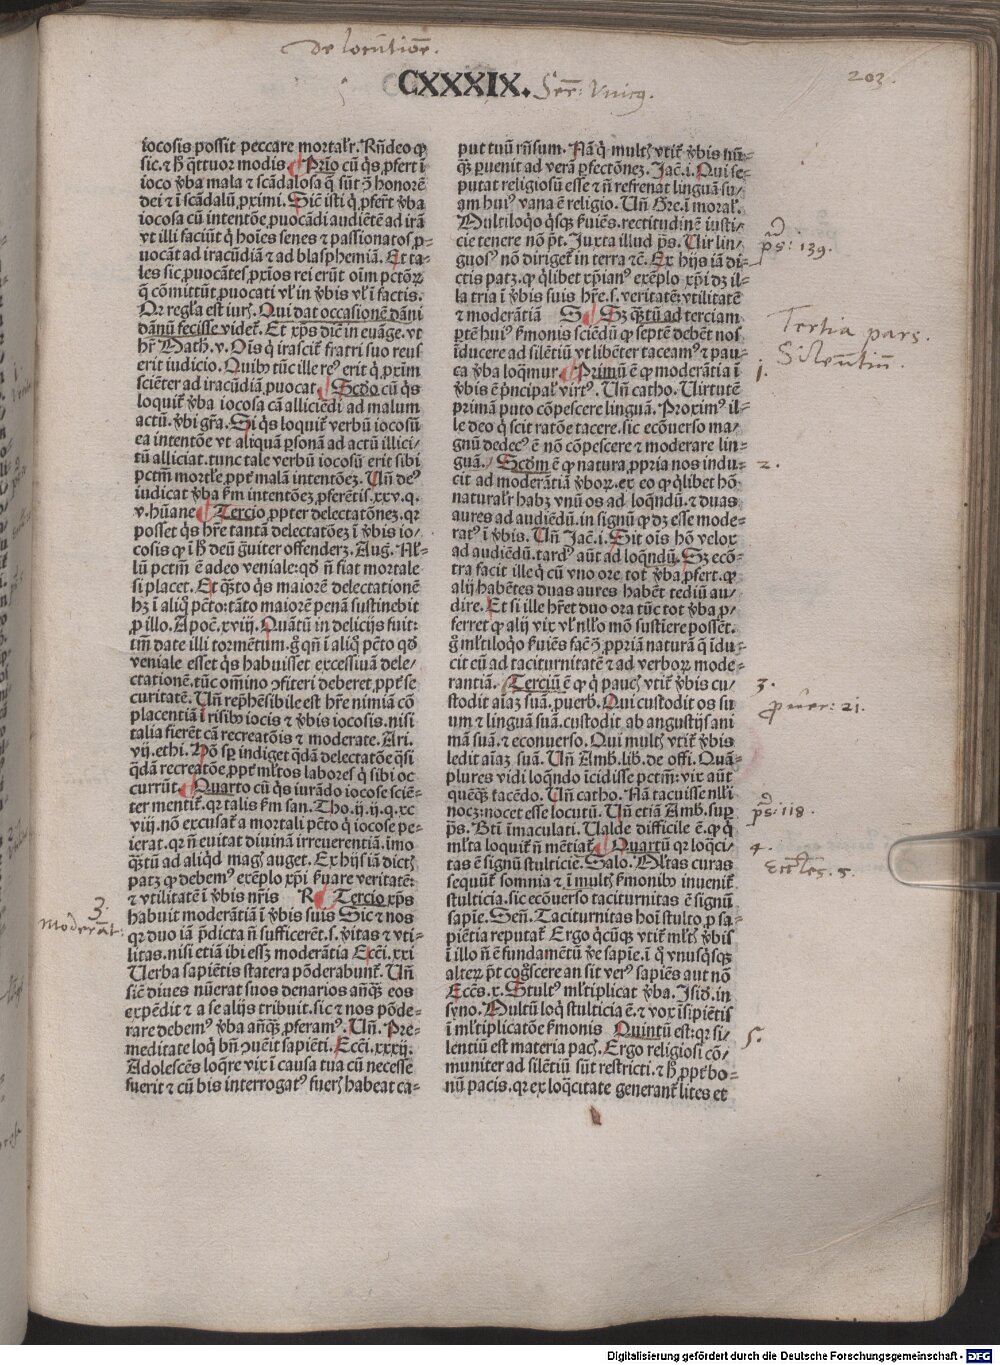 De locutiõe.
CXXXIX. Ser: Vnicꝯ.
203.
iocosis possit peccare mortalr̃. Rñdeo ꝙ
sic. ⁊ h̃ q̃ttuor modis. Prĩo cũ q̇s ꝓfert ĩ
ioco v̓ba mala ⁊ scãdalosa q̃ sũt ↄ̃ honorẽ
dei ⁊ ĩ scãdalũ ꝓximi. Sic̃ isti q̇ ꝓferũt v̓ba
iocosa cũ intentõe ꝓuocãdi audiẽtẽ ad irã
vt illi faciũt q̇ hoĩes senes ⁊ passionatos ꝓ⸗
uocãt ad iracũdiã ⁊ ad blasphemiã. Et ta⸗
les sic ꝓuocãtes ꝓxĩos rei erũt oĩm pctõꝝ
q̃ cõmittũt ꝓuocati vl̓ in v̓bis vl̓ ĩ factis.
Qꝛ regl̓a est iurꝭ. Qui dat occasionẽ dãni
dãnũ fecisse videt̃. Et xp̃s dic̃ in euãge. vt
hr̃ Math. v. Oĩs q̇ irascit̃ fratri suo reus
erit iudicio. Quibꝫ tũc ille reꝰ erit q̇ ꝓxim̃
sciẽter ad iracũdiã ꝓuocat. Scd̓o cũ q̇s
loquit̃ v̓ba iocosa cã alliciẽdi ad malum
actũ. v̓bi gr̃a. Si q̇s loquit̃ verbũ iocosũ
ea intentõe vt aliquã ꝑsonã ad actũ illici/
tũ alliciat. tunc tale verbũ iocosũ erit sibi
pctm̃ mortl̓e ꝓpt̃ malã intentõeꝫ. Uñ deꝰ
iudicat v̓ba ẜm intentõeꝫ ꝓferẽtis. xxv. q.
v. hũane Tercio ꝓpter delectatõneꝫ. qꝛ
posset q̇s hr̃e tantã delectatõeꝫ ĩ v̓bis io/
cosis ꝙ ĩ h̃ deũ g̃uiter offenderꝫ. Aug. Nl̓⸗
lũ pctm̃ ẽ adeo veniale: qd̓ ñ fiat mortale
si placet. Et q̃sto q̇s maiorẽ delectationẽ
hꝫ ĩ aliq̇ pc̃to: tãto maiorẽ penã sustinebit
ꝓ illo. Apoc̃. xviij. Quãtũ in delicijs fuit:
tm̃ date illi tormẽtum. g̊ qñ ĩ aliq̇ pc̃to qd̓
veniale esset q̇s habuisset excessiuã dele/
ctationẽ. tũc om̃ino ↄfiteri deberet ꝓpt̃ se
curitatẽ. Uñ rep̃hẽsibile est hr̃e nimiã cõ
placentiã ĩ risibꝫ iocis ⁊ v̓bis iocosis. nisi
talia fierẽt cã recreatõis ⁊ moderate. Ari.
vij. ethi. Hõ sꝑ indiget q̃dã delectatõe q̃si
q̃dã recreatõe ꝓpt̃ ml̓tos labores q̇ sibi oc
currũt. Quarto cũ q̇s iurãdo iocose sciẽ⸗
ter mentit̃. qꝛ talis ẜm san. Tho. ij. ij. q. xc
viij. nõ excusat̃ a mortali pc̃to q̇ iocose pe⸗
ierat. qꝛ ñ euitat diuinã irreuerentiã. imo
q̃tũ ad aliqd̓ magꝭ auget. Ex hijs iã dictꝭ
patꝫ ꝙ debemꝰ exẽplo xp̃i ẜuare veritatẽ:
⁊ vtilitatẽ ĩ v̓bis nr̃is R Tercio xp̃s
habuit moderãtiã ĩ v̓bis suis Sic ⁊ nos
qꝛ duo iã p̃dicta ñ sufficerẽt. s. v̓itas ⁊ vti⸗
litas. nisi etiã ibi essꝫ moderãtia Ecc̃i. xxi
Uerba sapiẽtis statera põderabunt̃. Uñ
sicẽ diues nũerat suos denarios añq̃ꝫ eos
expẽdit ⁊ a se alijs tribuit. sic ⁊ nos põde⸗
rare debemꝰ v̓ba añq̃ꝫ ꝓferamꝰ. Uñ. Pre⸗
meditate loq̇ bñ ↄuẽit sapiẽti. Ecc̃i. xxxij.
Adolescẽs loq̃re vix ĩ causa tua cũ necesse
fuerit ⁊ cũ bis interrogatꝰ fuerꝭ habeat ca⸗
put tuũ rñsum. Nã q̇ multꝭ vtit̃ v̓bis nũ⸗
q̃ꝫ ꝑuenit ad verã ꝑfectõneꝫ. Jac̃. i. Qui se⸗
putat religiosũ esse ⁊ ñ refrenat linguã su/
am huiꝰ vana ẽ religio. Uñ Gre. ĩ moral̓.
Multiloq̇o q̇sq̇ꝫ ẜuiẽs. rectitudinẽ iusti⸗
cie tenere nõ p̃t. Juxta illud ps̃. Uir lin/
guosꝰ nõ diriget̃ in terra ⁊c̃. Ex hijs iã di⸗
ctis patꝫ. ꝙ q̇libet xp̃ianꝰ exẽplo xp̃i dꝫ il⸗
la tria ĩ v̓bis suis hr̃e. s. veritatẽ: vtilitatẽ
⁊ moderãtiã S Sꝫ q̃tũ ad terciam
ꝑtẽ huiꝰ ẜmonis sciẽdũ ꝙ septẽ debẽt nos
ĩducere ad silẽtiũ vt libẽter taceamꝰ ⁊ pau⸗
ca v̓ba loq̃mur. Primũ ẽ ꝙ moderãtia ĩ
v̓bis ẽ p̃ncipal̓ virtꝰ. Uñ catho. Uirtutẽ
primã puto cõpescere linguã. Proximꝰ il⸗
le deo q̇ scit ratõe tacere. sic ecõuerso ma/
gnũ dedecꝰ ẽ nõ cõpescere ⁊ moderare lin⸗
guã. Scd̓m ẽ ꝙ natura ꝓpria nos indu⸗
cit ad moderãtiã v̓boꝝ. ex eo ꝙ q̇libet hõ.
naturalr̃ habꝫ vnũ os ad loq̃ndũ. ⁊ duas
aures ad audiẽdũ. in signũ ꝙ dꝫ esse mode⸗
ratꝰ ĩ v̓bis. Uñ Jac̃. i. Sit oĩs hõ velox
ad audiẽdũ. tardꝰ aũt ad loq̃ndũ. Sꝫ ecõ⸗
tra facit ille q̇ cũ vno ore. tot v̓ba ꝓfert. ꝙ
alij habẽtes duas aures habẽt tediũ au/
dire. Et si ille hr̃et duo ora tũc tot v̓ba ꝓ/
ferret ꝙ alij vix vl̓ nl̓lo mõ sustiere possẽt.
g̊ ml̓tiloq̇o ẜuiẽs fac̃ ↄ̃ ꝓpriã naturã q̃ ĩdu⸗
cit eũ ad taciturnitatẽ ⁊ ad verboꝝ mode⸗
rantiã. Terciũ ẽ ꝙ q̇ paucꝭ vtit̃ v̓bis cu/
stodit aĩaꝫ suã. ꝓuerb. Qui custodit os su
um ⁊ linguã suã. custodit ab angustijs ani
mã suã. ⁊ econuerso. Qui multꝭ vtit̃ v̓bis
ledit aĩaꝫ suã. Uñ Amb. lib. de offi. Quã⸗
plures vidi loq̃ndo ĩcidisse pctm̃: vix aũt
quẽq̃ꝫ tacẽdo. Uñ catho. Nã tacuisse nl̓li
nocꝫ: nocet esse locutũ. Uñ etiã Amb. suꝑ
ps̃. Bt̃i ĩmaculati. Ualde difficile ẽ. ꝙ q̇
ml̓ta loquit̃ ñ mẽtiat̃. Quartũ qꝛ loq̃ci⸗
tas ẽ signũ stulticiẽ. Salo. Ml̓tas curas
sequũt̃ somnia ⁊ ĩ multꝭ ẜmonibꝫ inuenit̃
stulticia. sic ecõuerso taciturnitas ẽ signũ
sapie. Señ. Taciturnitas hoĩ stulto ꝓ sa⸗
piẽtia reputat̃ Ergo q̇cũq̇ꝫ vtit̃ ml̓tꝭ v̓bis
ĩ illo ñ ẽ fundamẽtũ v̓e sapie. ĩ q̇ vnusq̇sq̇ꝫ
alterꝫ p̃t cog̃scere an sit verꝰ sapiẽs aut nõ
Ecc̃s. x. Stultꝰ ml̓tiplicat v̓ba. Jsid̓. in
syno. Multũ loq̇ stulticia ẽ. ⁊ vox ĩsipiẽtis
ĩ ml̓tiplicatõe ẜmonis Quintũ est: qꝛ si/
lentiũ est materia pacꝭ. Ergo religiosi cõ/
muniter ad silẽtiũ sũt restricti. ⁊ h̃ ꝓpt̃ bo⸗
nũ pacis. qꝛ ex loq̃citate generant̃ lites et
3.
Moderãt:
ps: 139.
Tertia pars.
Silentiũ.
1.
2.
3.
Prouer: 21.
ps: 118.
4.
Eccl̓es. 5.
5.
Digitalisierung gefördert durch die Deutsche Forschungsgemeinschaft - DFG